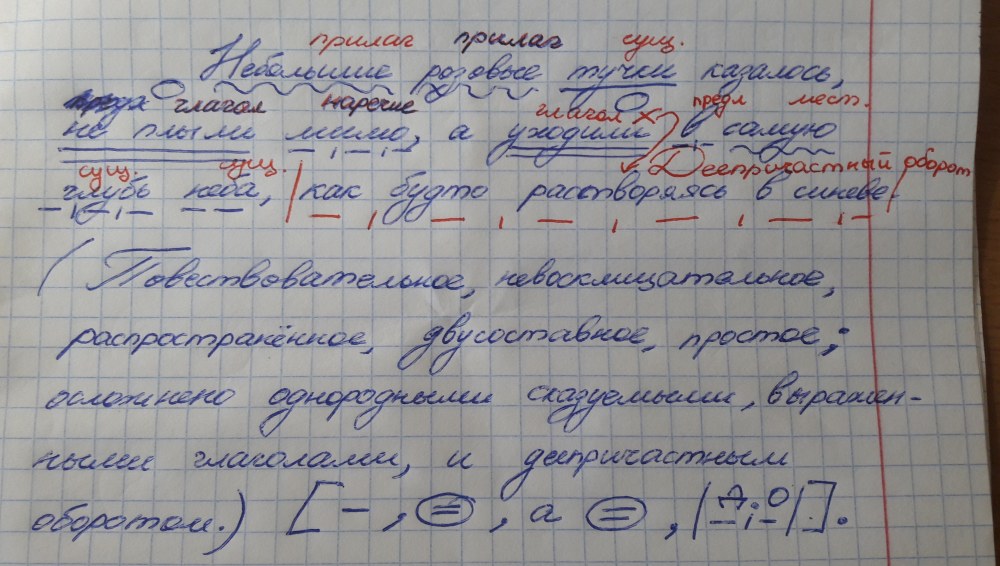 прилаг прилаг сущ.
Небольшие розовые тучки казалось,
глагол наречие глагол предл мест.
не плыли мимо, а уходили в самую
сущ. сущ. Деепричастный оборот
глубь неба, | как будто растворяясь в синеве. |
(Повествовательное, невосклицательное,
распространённое, двусоставное, простое;
осложнено однородными сказуемыми, выражен-
ными глаголами, и деепричастным
оборотом.) [ – , = , а = , | Д. О | ].